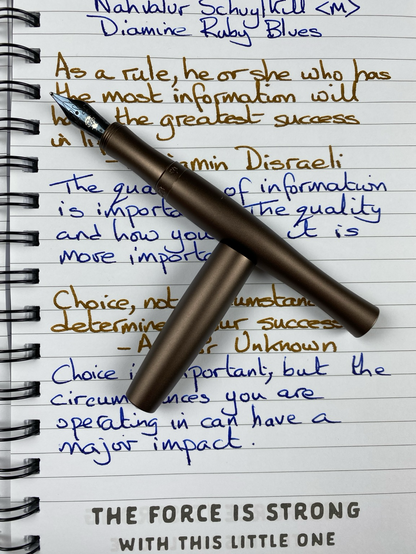 Nahvalur Schuylkill <M>
Diamine Ruby Blues
As a rule, he or she who has
the most information will
the greatest success
in
Disraeli
The of information
is The quality
and how you it is
more
Choice, not
determine success
- Unknown
Choice but the
you are
operating in can have a
major impact.
THE FORCE IS STRONG
WITH THIS LITTLE ONE